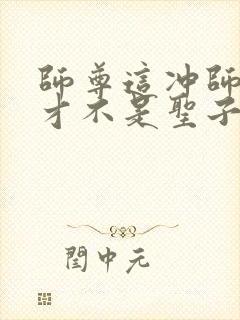 師尊這冲師
才不是聖子
閏中元